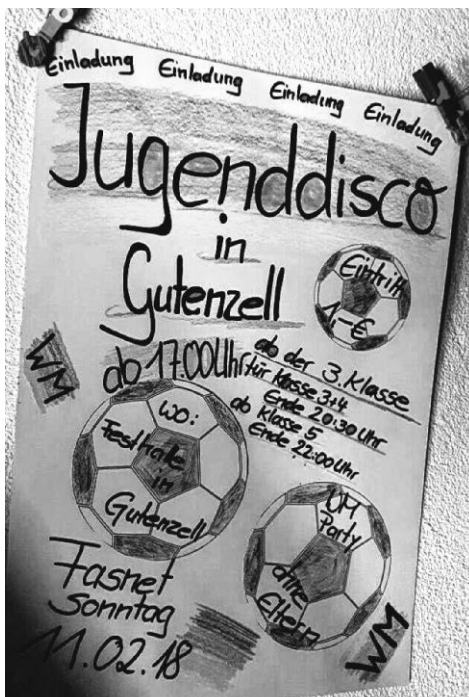 Einladung Einladung Einladung Einladung
Jugenddisco
in
Gutenzell
Eintritt
1,-€
ab 17.00 Uhr
ab der 3. Klasse
für Klasse 3+4
Ende 20:30 Uhr
ab Klasse 5
Ende 22:00 Uhr
WM
WO:
Festhalle
in
Gutenzell
Party
ohne
Eltern
Fasnet
Sonntag
11.02.18
WM